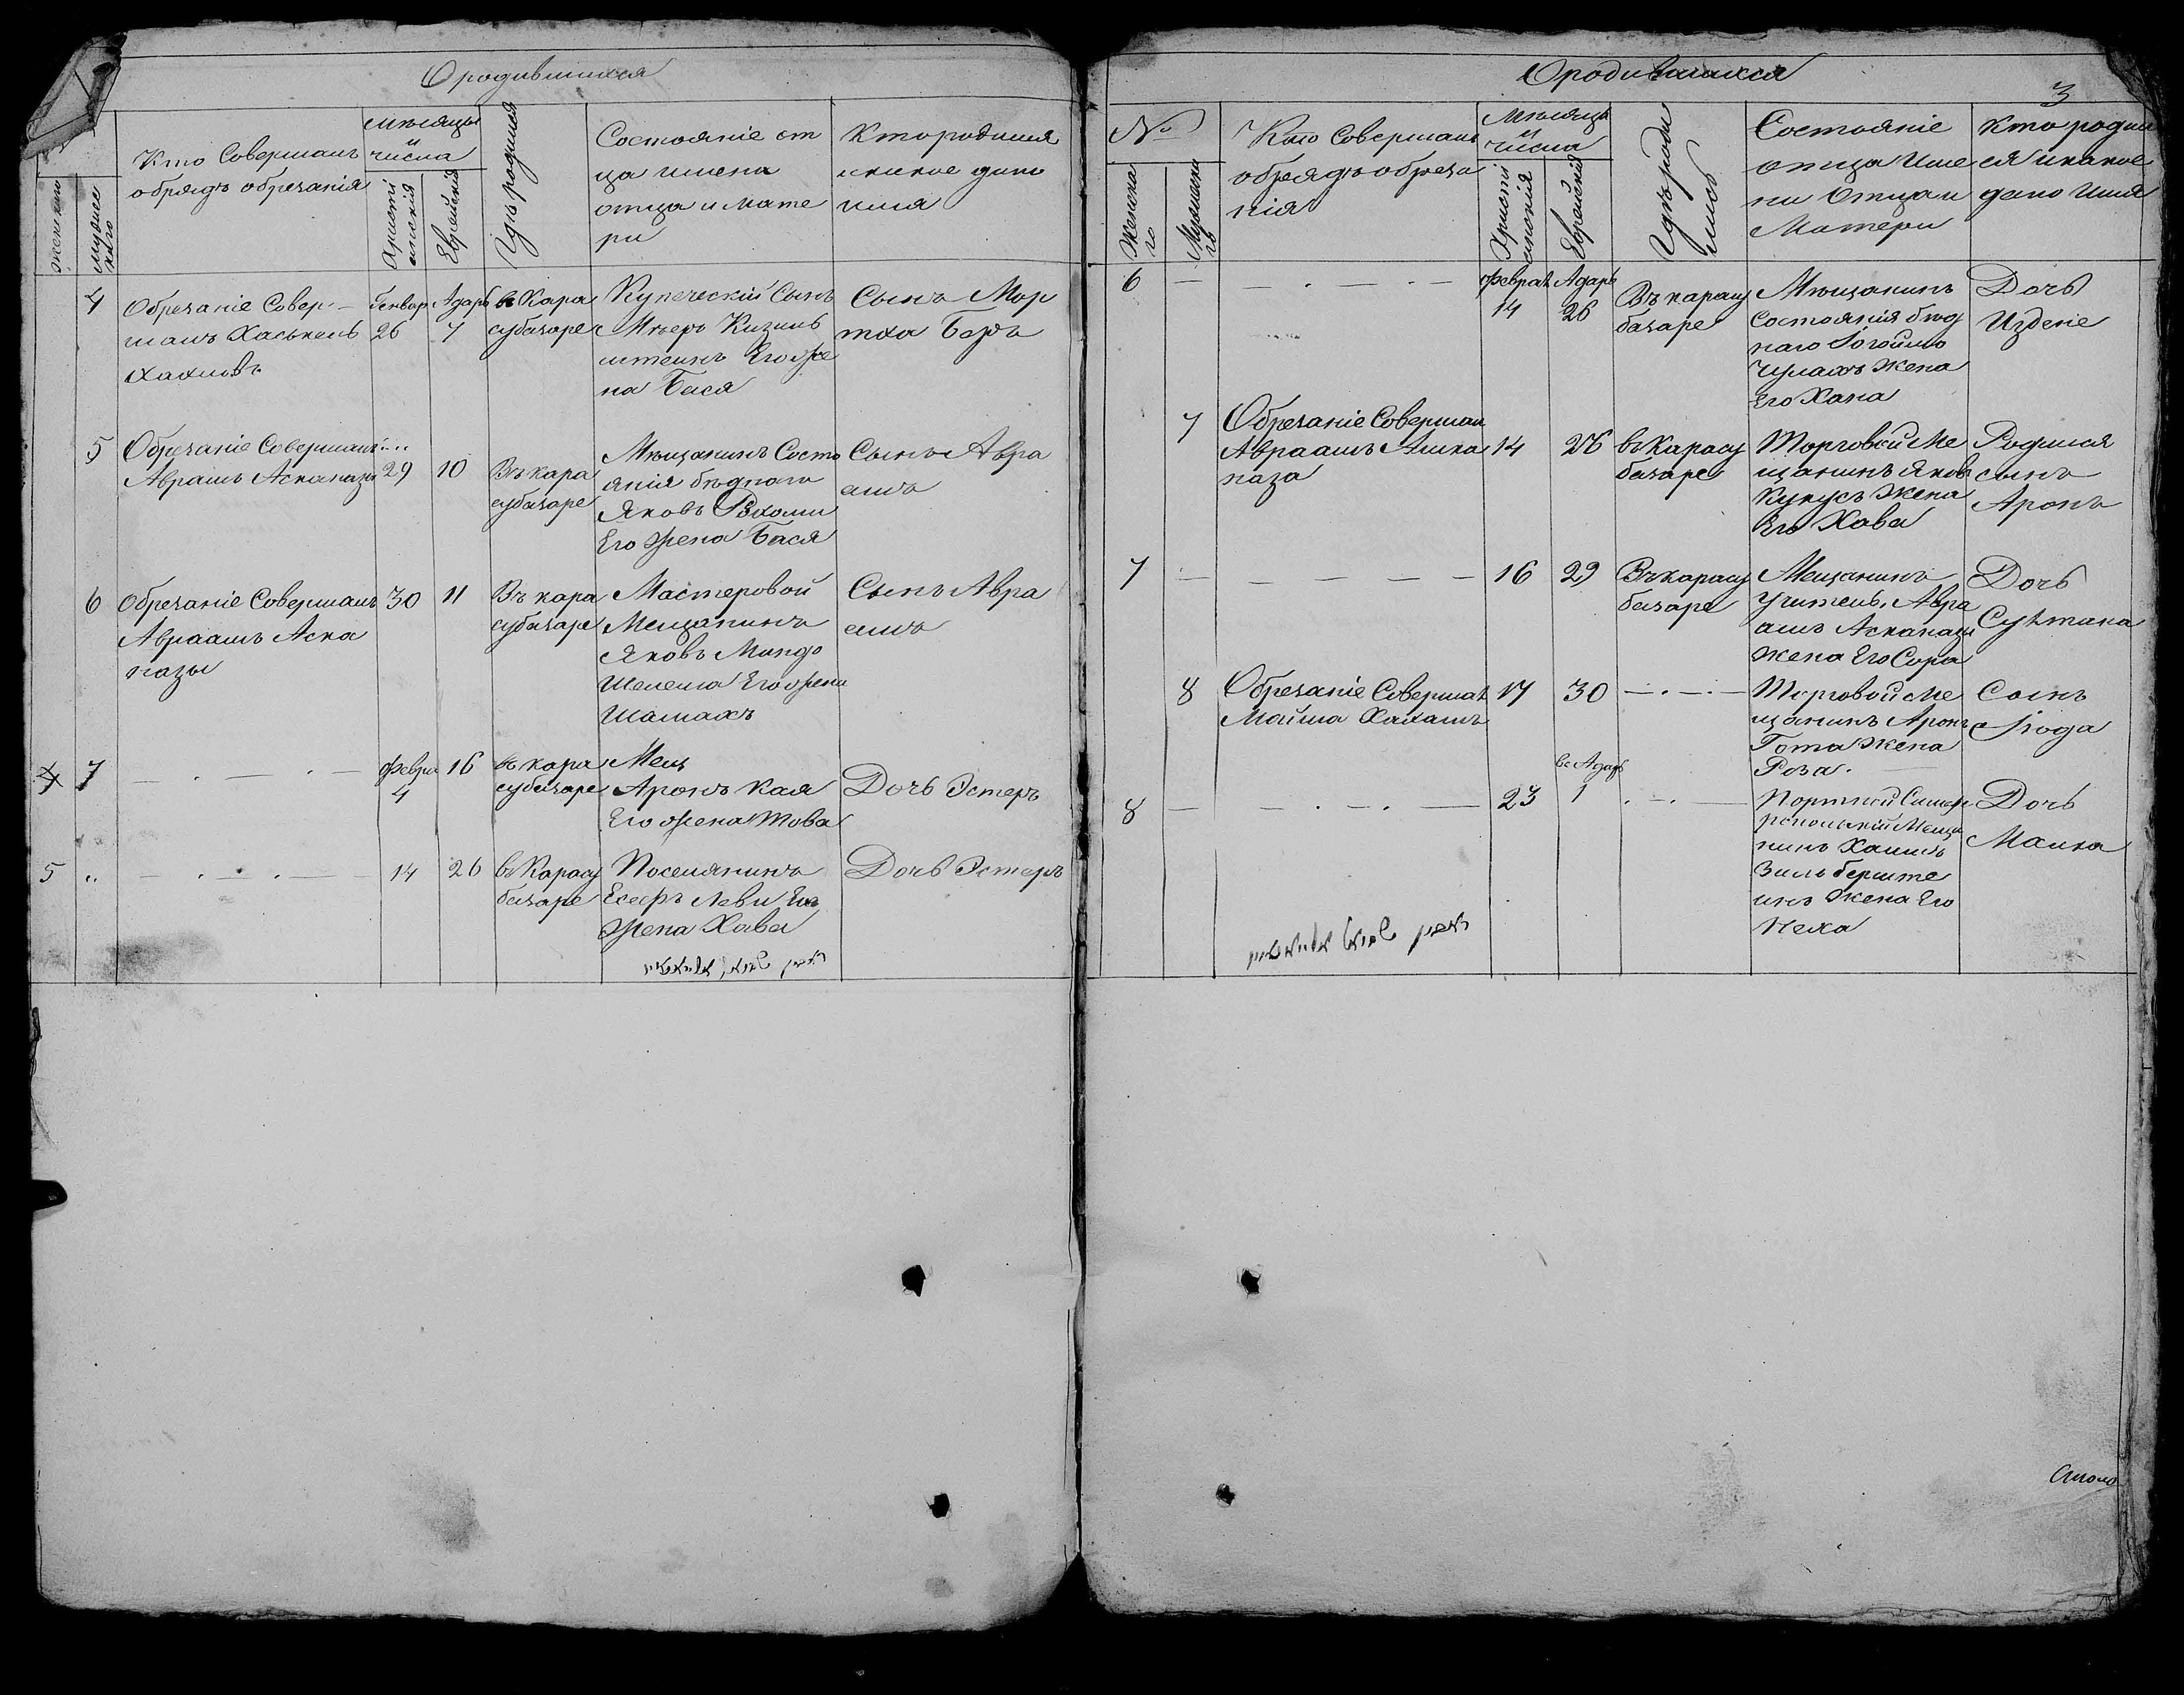 О родившихся
Кто Совершалъ
обрядъ обрезанія
Мѣсяцы
и
числа
Гдѣ родился
Состояніе от
ца имена
отца и мате
ри
Кто родился
и какое дано
имя
женскаго
мужес
каго
Христі
анскія
Еврейскія
4
Обрезаніе Совер-
шалъ Хаскель
Хахмовъ
Генвар
26
Адаръ
7
въ Кара
субазаре
Купеческій Сынъ
Мѣеръ Кизиль
штеинъ Его же
на Бася
Сынъ Мор
тха Беръ
5
Обрезаніе Совершалъ
Абрамъ Асканази
29
10
Въ кара
субазаре
Мѣщанинъ Состо
янія бѣднаго
Яковъ Рохоми
Его жена Бася
Сынъ Авра
амъ
6
Обрезаніе Совершалъ
Авраамъ Аска
назы
30
11
Въ кара
субазаре
Мастеровой
Мещанинъ
Яковъ Мандо
Шелема Его жена
Шамахъ
Сынъ Авра
амъ
4 7
Февра
4
16
въ кара
субазаре
Мещ
Аронъ Кая
Его жена Това
Дочь Эстеръ
5
14
26
въ Карасу
базаре
Поселянинъ
Есефъ Леви Его
Жена Хава
Дочь Эстеръ
О родившихся
3
№
Кто Совершалъ
обрядъ обреза
нія
Мѣсяцъ
и
числа
Гдѣ роди
лись
Состояніе
отца име
ни Отца и
Матери
Кто родил
ся и какое
дано имя
Женска
го
Мужеска
го
Христі
анскія
Еврейскія
6
Феврал
14
Адаръ
26
Въ карасу
базаре
Мѣщанинъ
Состоянія бѣд
наго Рогоймо
Чулахъ Жена
Его Хана
Дочь
Издене
7
Обрезаніе Совершал
Авраамъ Ашка
наза
14
26
въ Карасу
базаре
Торговой Ме
щанинъ Яковъ
Кукусъ Жена
Его Хава
Родился
сынъ
Аронъ
7
16
29
Въ карасу
базаре
Мещанинъ
Учитель Авра
амъ Асканази
Жена Его Сора
Дочь
Султана
8
Обрезаніе Совершал
Мойша Хахамъ
17
30
Торговой Ме
щанинъ Аронъ
Гота Жена
Роза.
Сынъ
Йода
8
23
ве Адаръ
1
Портной Симфе
ропольскій Меща
нинъ Хаимъ
Зильберште
инъ Жена Его
Неха
Дочь
Малка